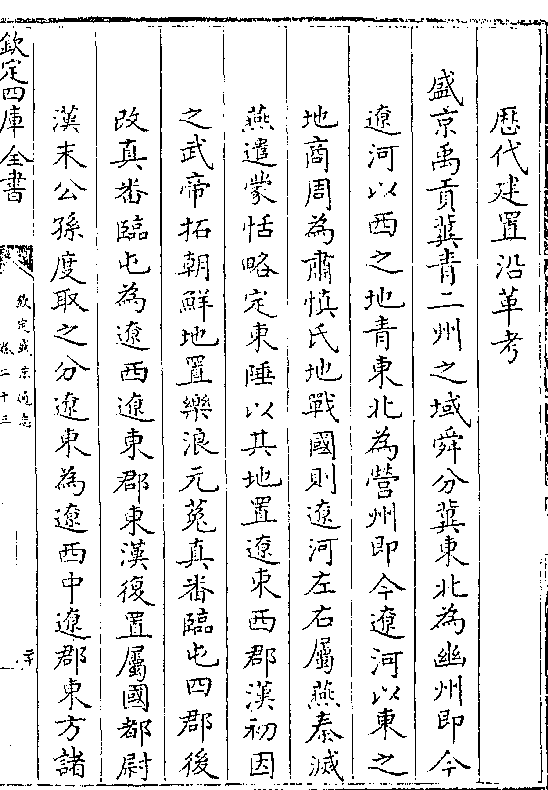 歴代建置沿革考
盛京禹貢冀青二州之域舜分冀東北為幽州即今
遼河以西之地青東北為營州即今遼河以東之
地商周為肅慎氏地戰國則遼河左右屬燕秦滅
燕遣蒙恬略定東陲以其地置遼東西郡漢初因
之武帝拓朝鮮地置樂浪元菟真番臨屯四郡後
改真番臨屯為遼西遼東郡東漢復置屬國都尉
漢末公孫度取之分遼東為遼西中遼郡東方諸
欽定四庫全書
欽定盛京通志
卷二十三